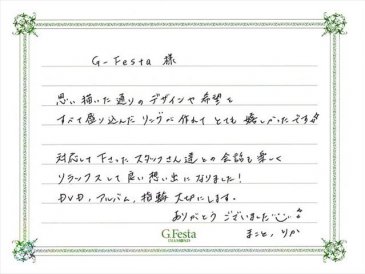 G-Festa 様
思い描いた通りのデザインや希望を
すべて盛り込んだリングが作れてとても嬉しかったです
対応して下さったスタッフさん達との会話も楽しく
リラックスして良い想い出になりました！
DVD、アルバム、指輪 大切にします。
ありがとうございました
G.Festa
DIAMOND
まこと、りか